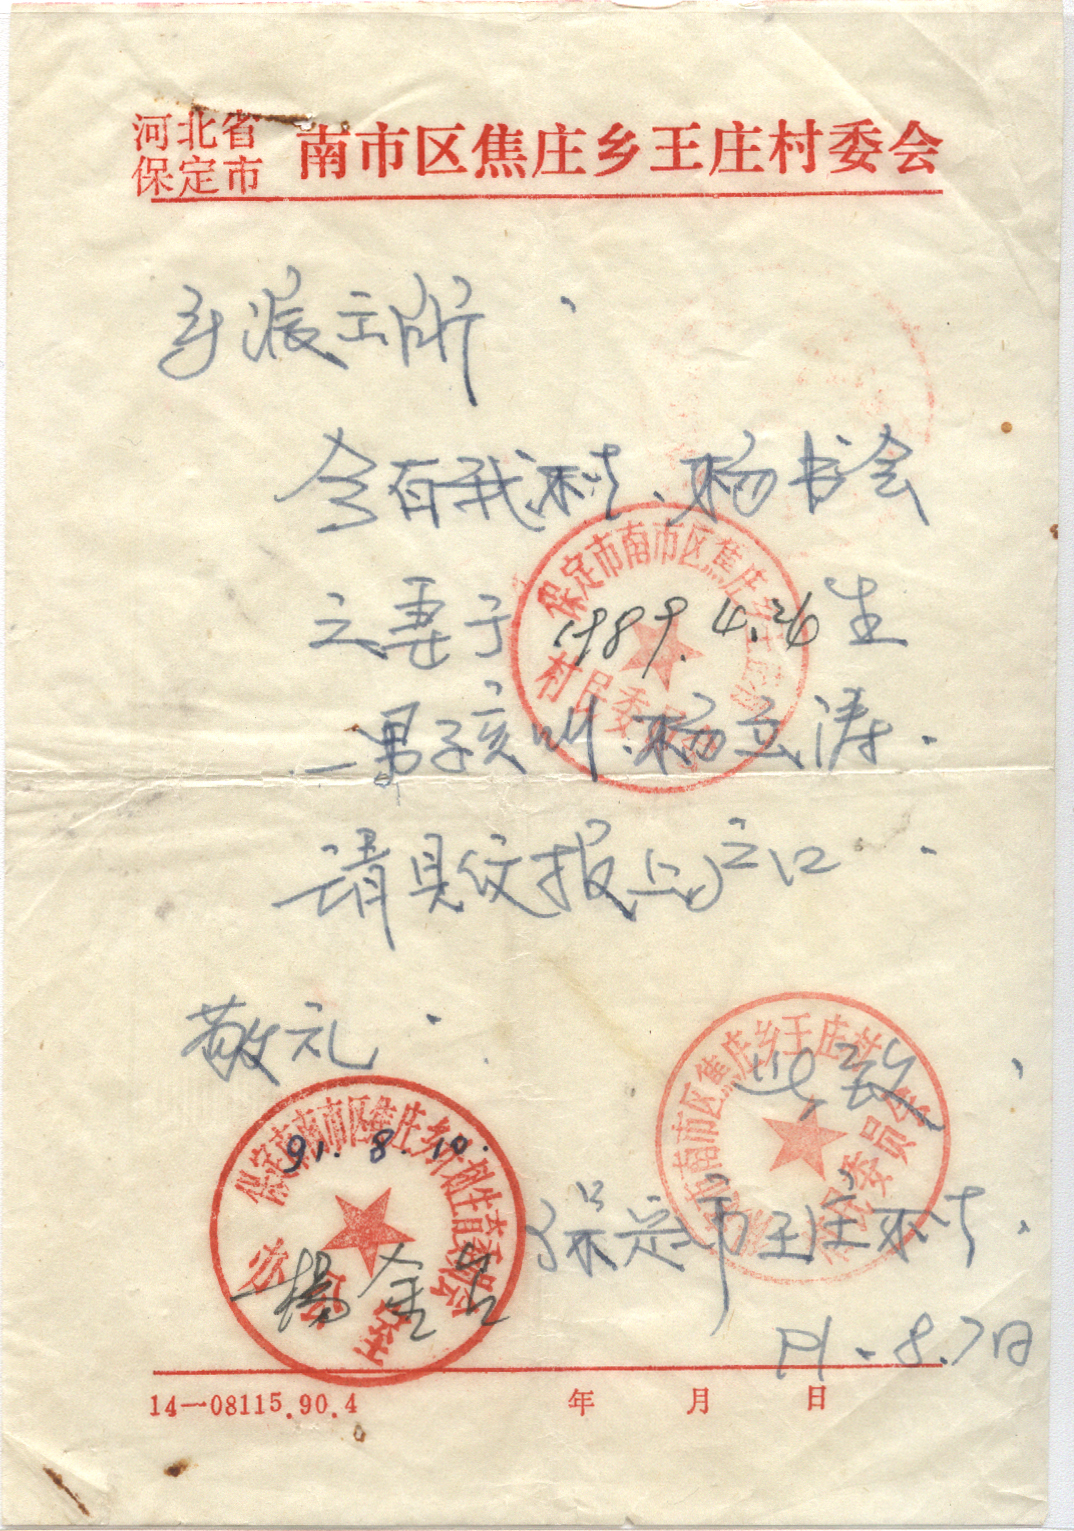 河北省
保定市
南市区焦庄乡王庄村委会
派立所
今有我村、杨书会
之妻于1989.4.26生
一男孩叫、杨立涛.
请具仅报上户口.
敬礼.
此致
保定市王庄村.
91.8.7日
保定市南市区焦庄乡王庄村
村民委员会
市南市区焦庄乡王庄村
村民委员会
保定市南市区焦庄乡计划生育委员会
办公室
91.8.10.
杨金
14—08115.90.4
年 月 日